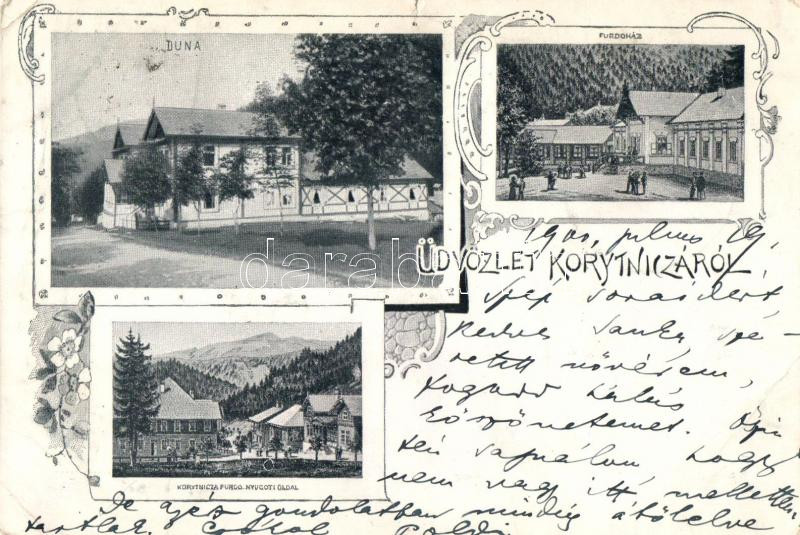 DUNA
FÜRDŐHÁZ
ÜDVÖZLET KORYTNICZÁRÓL
KORYTNICZA FÜRDŐ. NYUGOTI OLDAL
darabanth
1900, julius 29,
Szép soraidért
kedves Sanka sze-
retett nővérem,
fogadd hálás
köszönetemet. Őszin-
tén sajnálom hogy
nem vagy itt mellettem
De azért gondolatban mindig átölelve
tartlak. Csókol Poldi